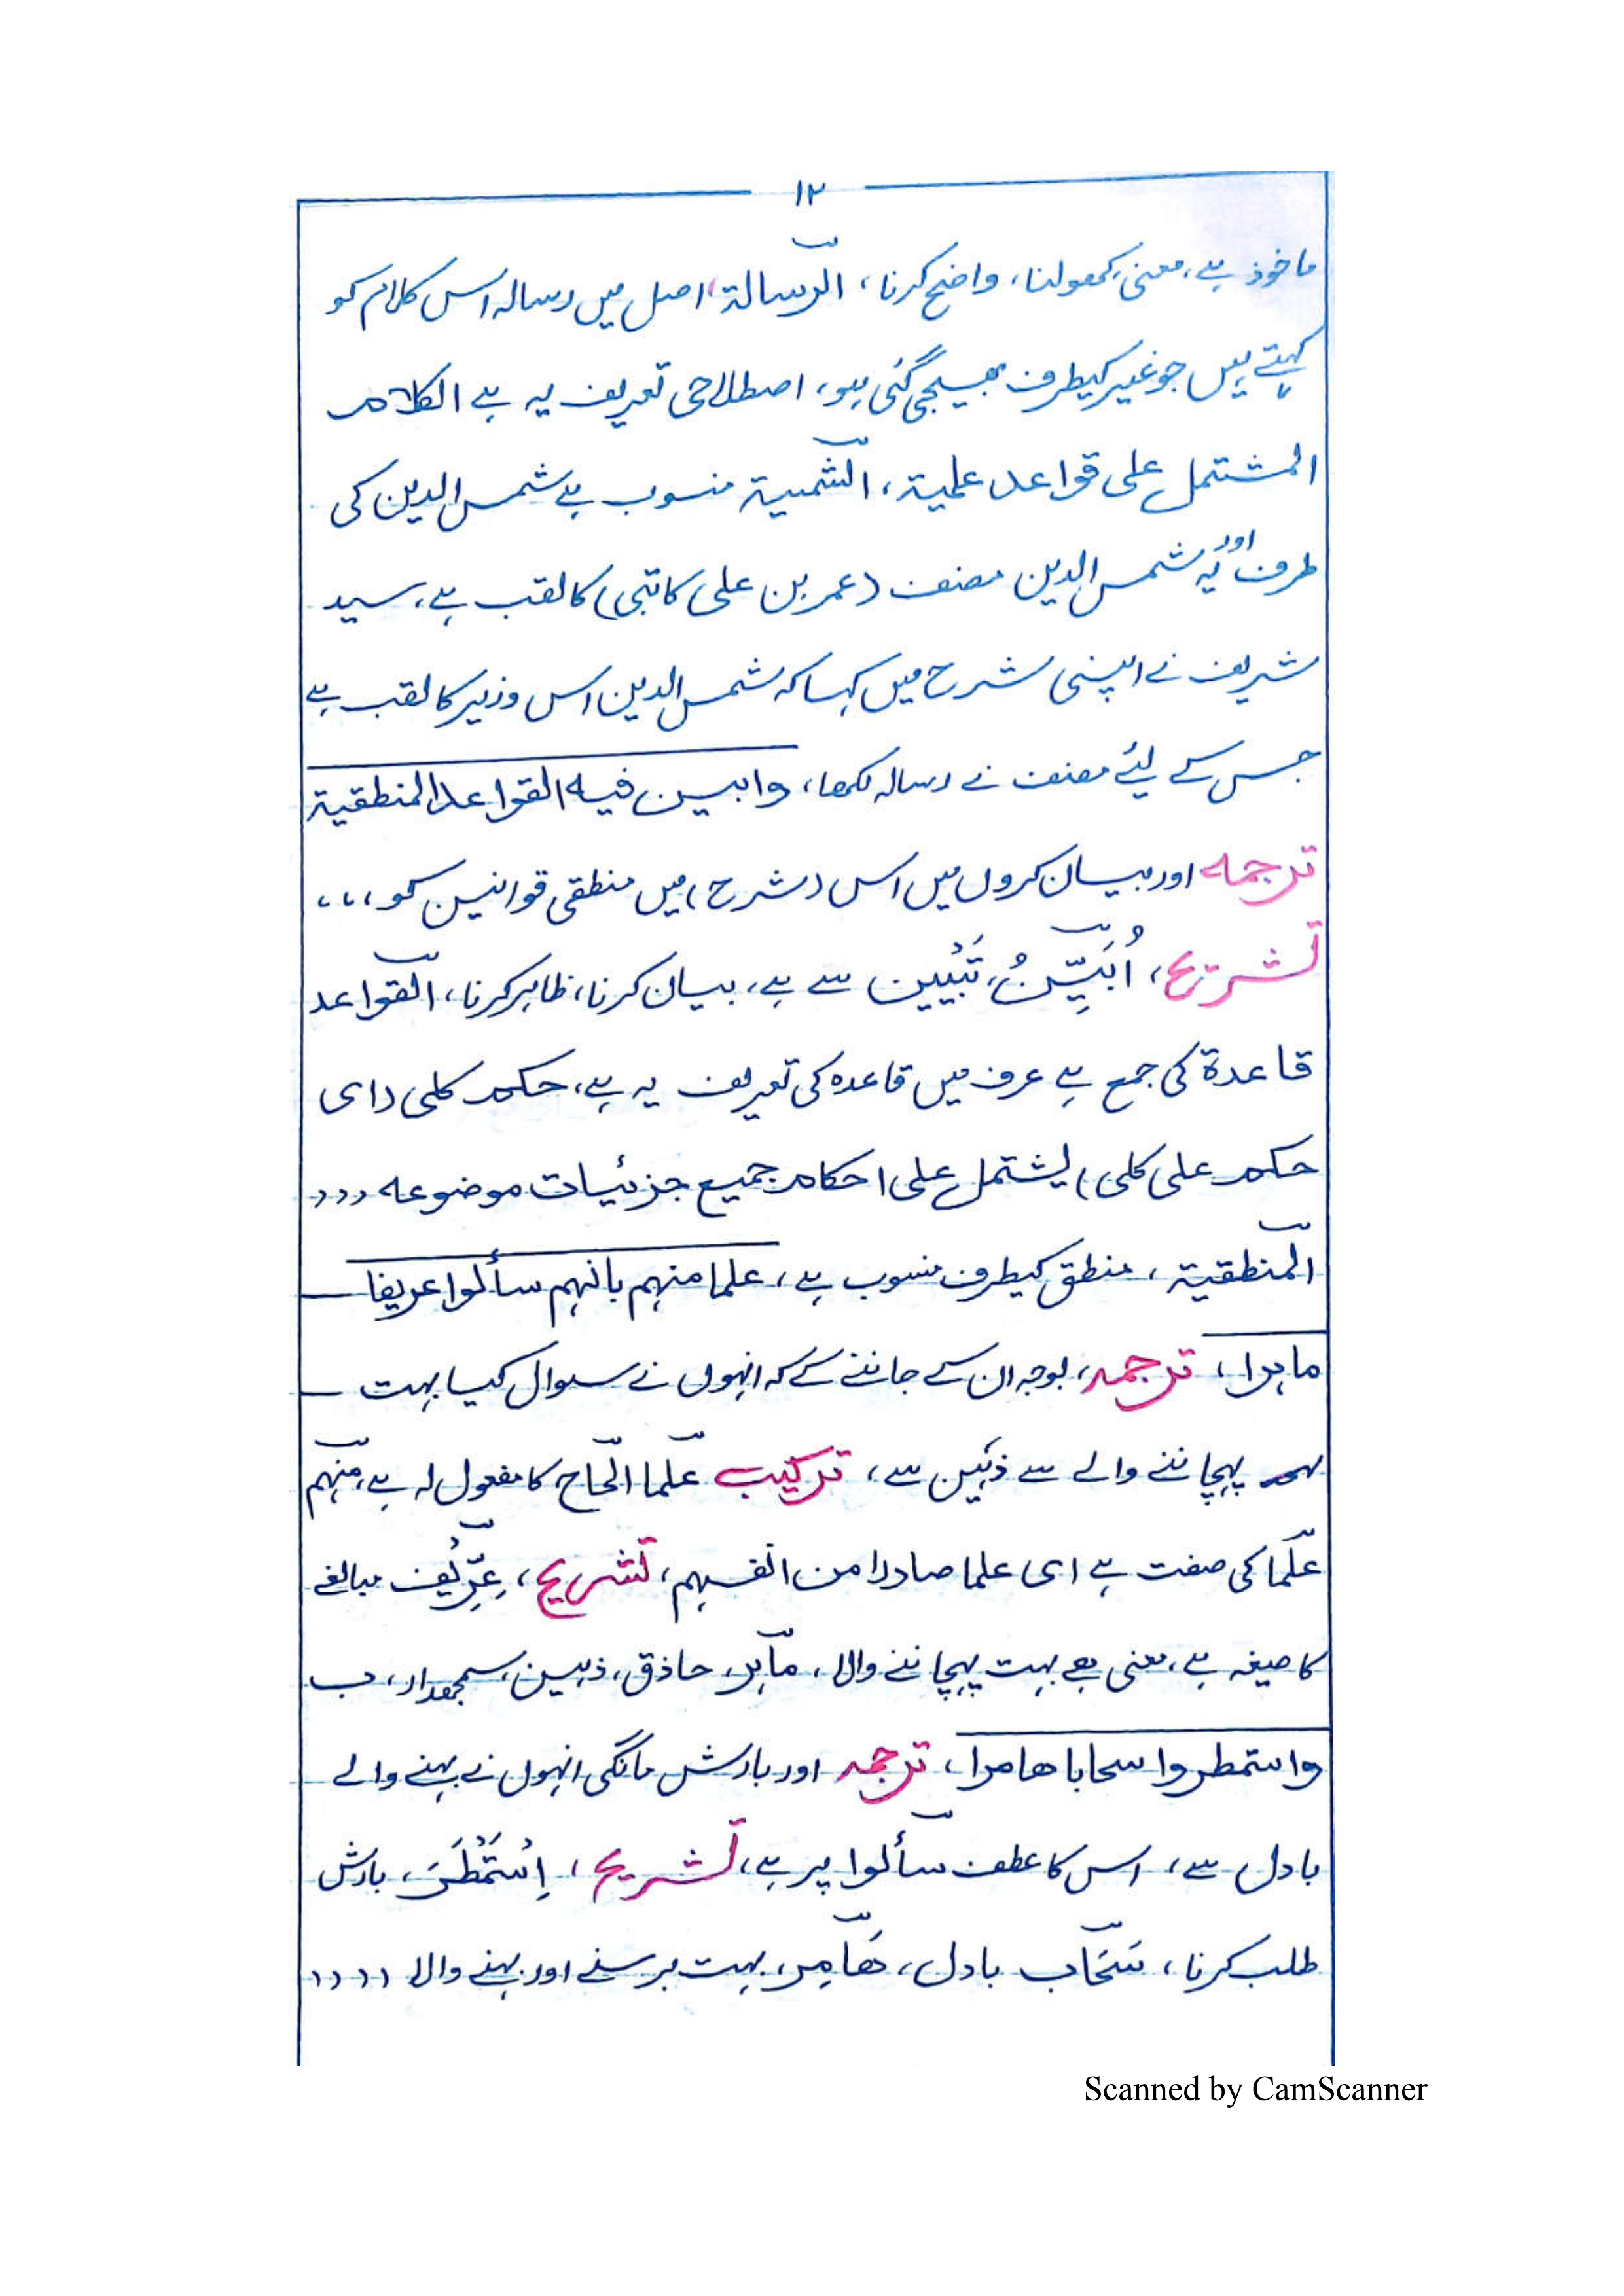 ۱۲
ماخوذ ہے، معنیٰ کھولنا، واضح کرنا، الرسالۃ، اصل میں رسالہ اس کلام کو
کہتے ہیں جو غیر کیطرف بھیجی گئی ہو، اصطلاحی تعریف یہ ہے الکلام
المشتمل علی قواعد علمیۃ، الشمسیۃ منسوب ہے شمس الدین کی
طرف اور یہ شمس الدین مصنف (عمر بن علی کاتبی) کا لقب ہے، سید
شریف نے اپنی شرح میں کہا کہ شمس الدین اس وزیر کا لقب ہے
جس کے لیئے مصنف نے رسالہ لکھا، وابین فیہ القواعد المنطقیۃ
ترجمہ اور بیان کروں میں اس (شرح) میں منطقی قوانین کو،،،
تشریح، اُبَیِّنُ، تَبْیِین سے ہے، بیان کرنا، ظاہر کرنا، القواعد
قاعدۃ کی جمع ہے عرف میں قاعدہ کی تعریف یہ ہے، حکم کلی (ای
حکم علی کلی) یشتمل علی احکام جمیع جزئیات موضوعہ ،،،
المنطقیۃ، منطق کیطرف منسوب ہے، علما منہم بانہم سألوا عریفا
ماہرا، ترجمہ، بوجہ ان کے جاننے کے کہ انہوں نے سوال کیا بہت
پہچاننے والے سے ذہین سے، ترکیب علما الحاح کا مفعول لہ ہے، منہم
علما کی صفت ہے ای علما صادرا من انفسہم، تشریح، عِرِّیْف مبالغے
کا صیغہ ہے، معنی ہے بہت پہچاننے والا، ماہر، حاذق، ذہین، سمجھدار،
واستمطروا سحابا ھامرا، ترجمہ اور بارش مانگی انہوں نے بہنے والے
بادل سے، اس کا عطف سألوا پر ہے، تشریح، اِسْتَمْطَرَ، بارش
طلب کرنا، سَحَاب بادل، ھَامِر، بہت برسنے اور بہنے والا ،،،،
Scanned by CamScanner